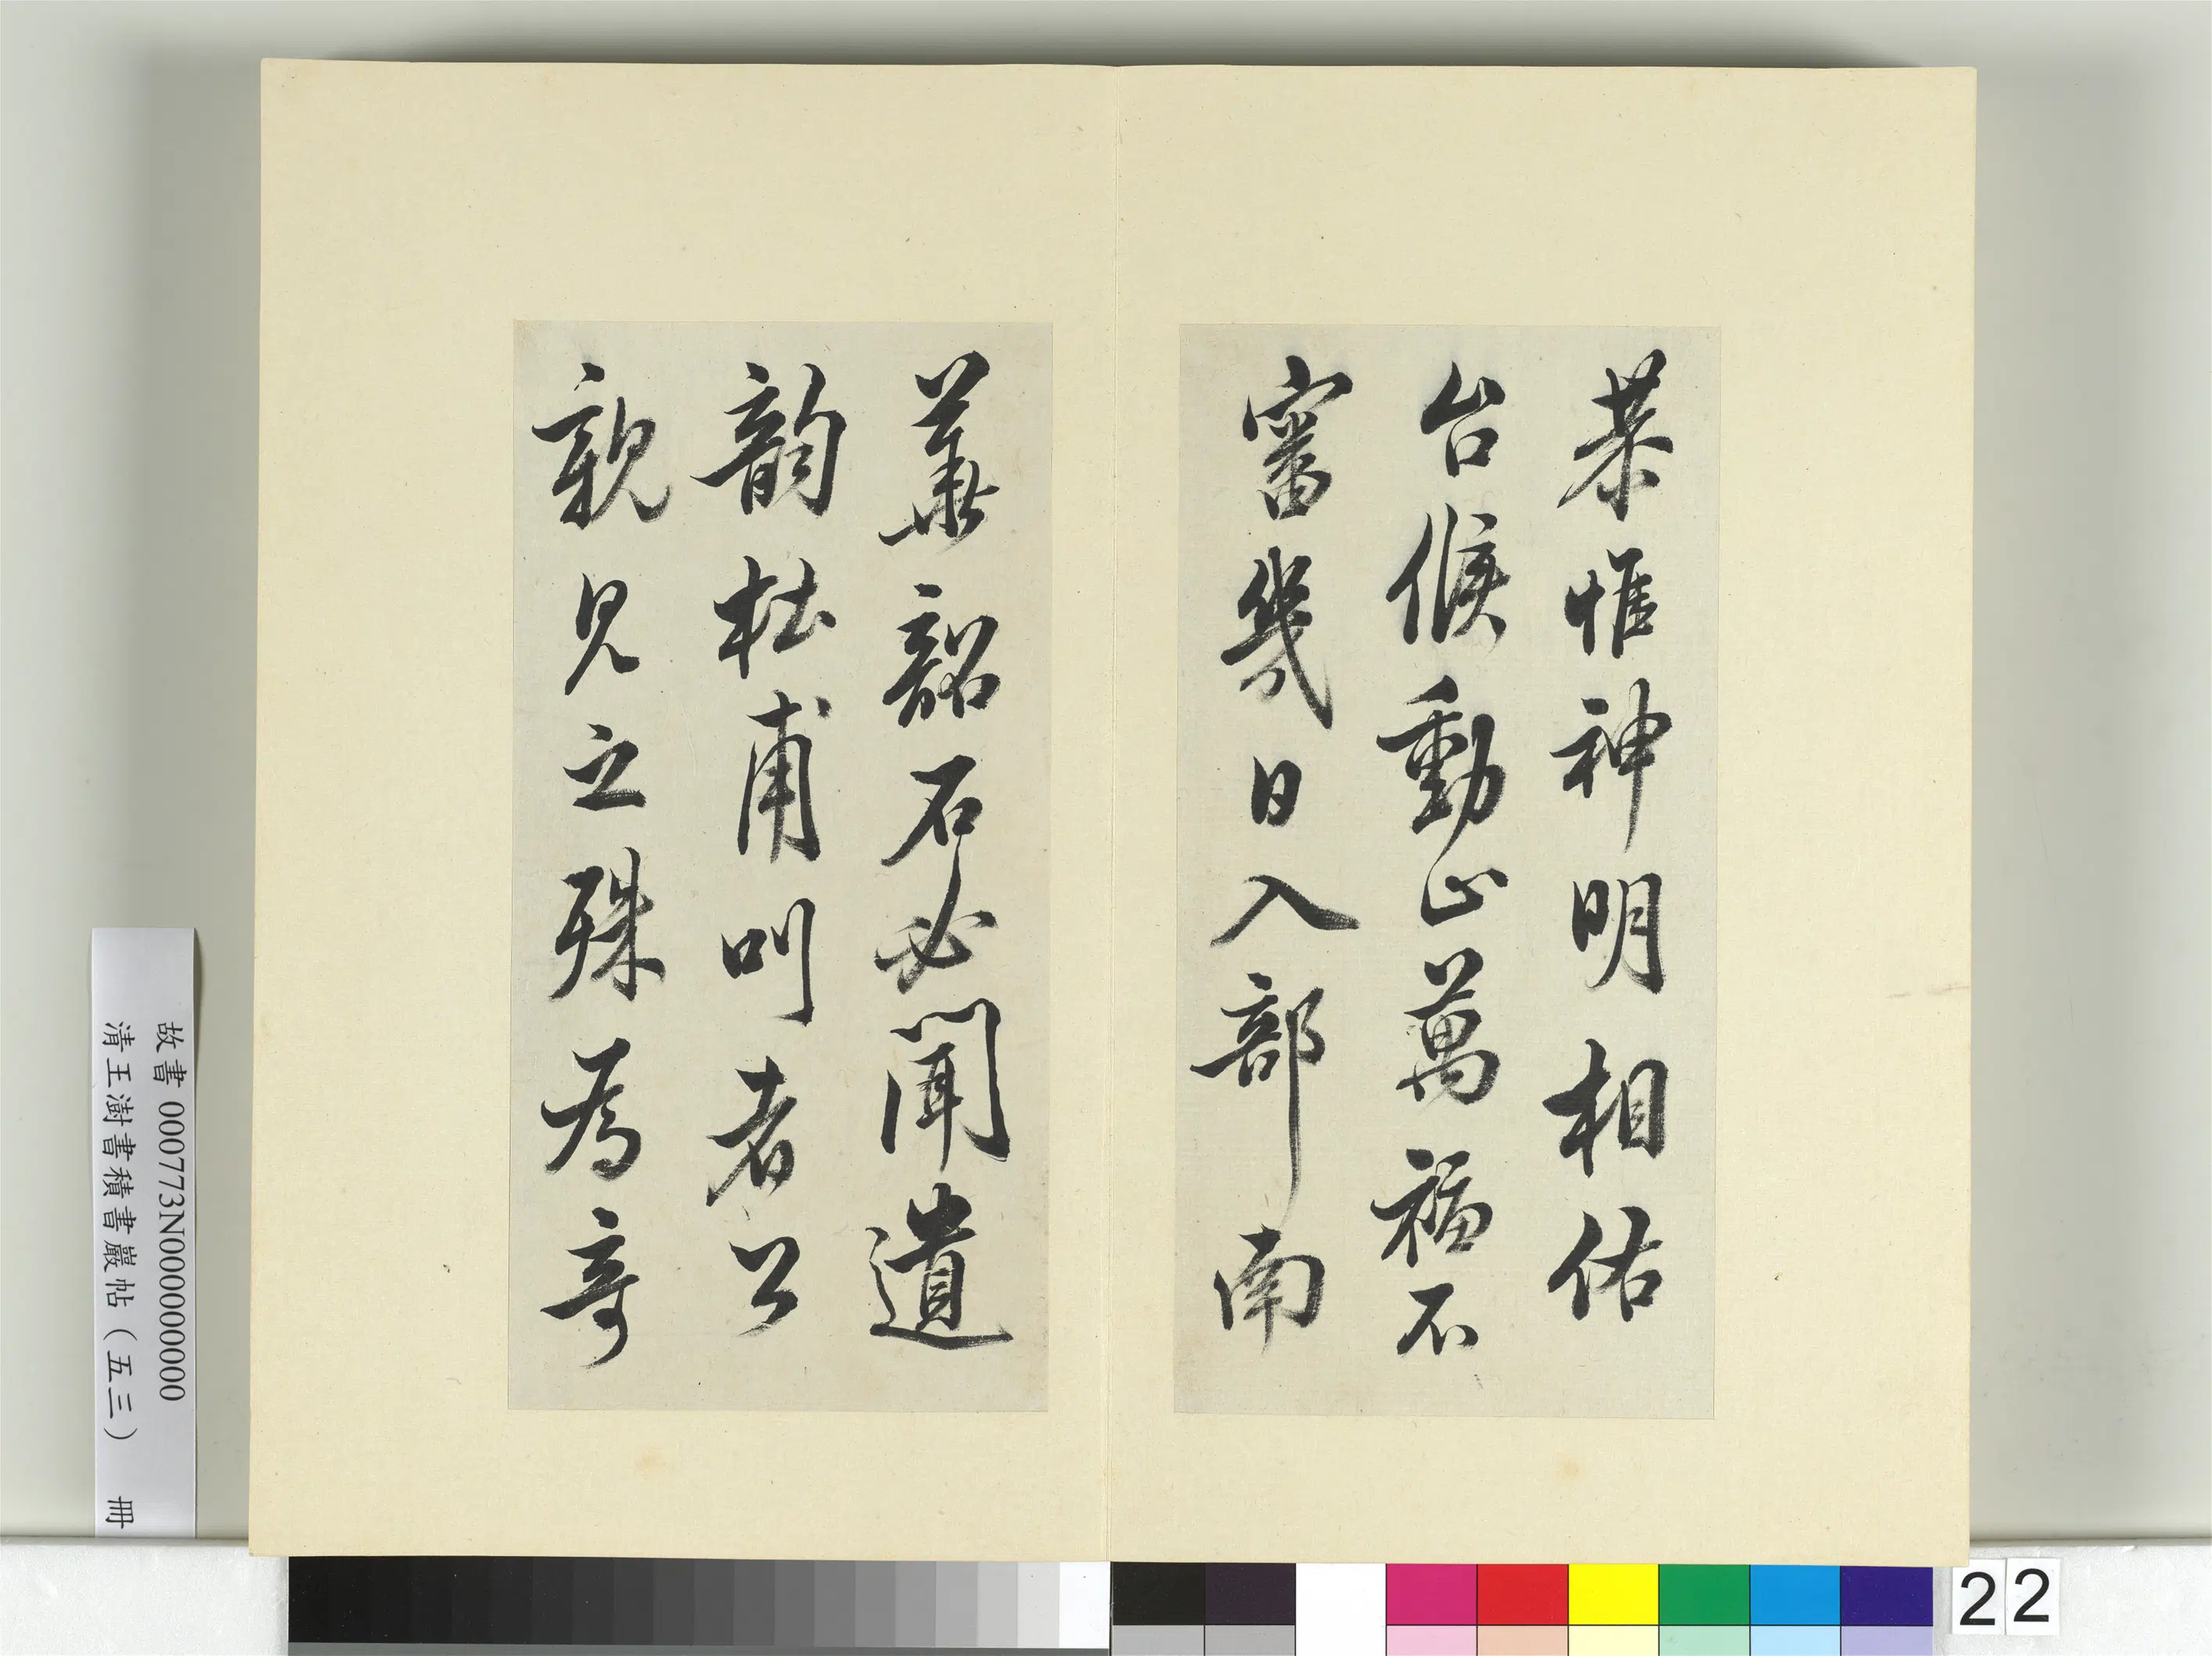 恭惟神明相佑
台候動止萬福不
審幾日入部南
蕭韶石必聞遺
韵杜甫叫者公
親見之殊為竒
故書 000773N000000000
清王澍書積書巖帖（五三） 冊
22